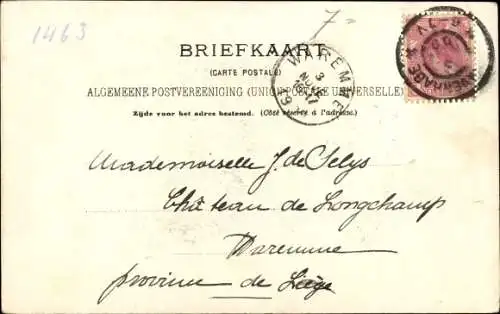 1463
7=
BRIEFKAART
(CARTE POSTALE)
ALGEMEENE POSTVEREENIGING (UNION POSTALE UNIVERSELLE)
Zijde voor het adres bestemd. (Côté réservé à l'adresse.)
WAREMME
3
NOV
Mademoiselle J. de Selys
Château de Longchamp
Waremme
province de Liège